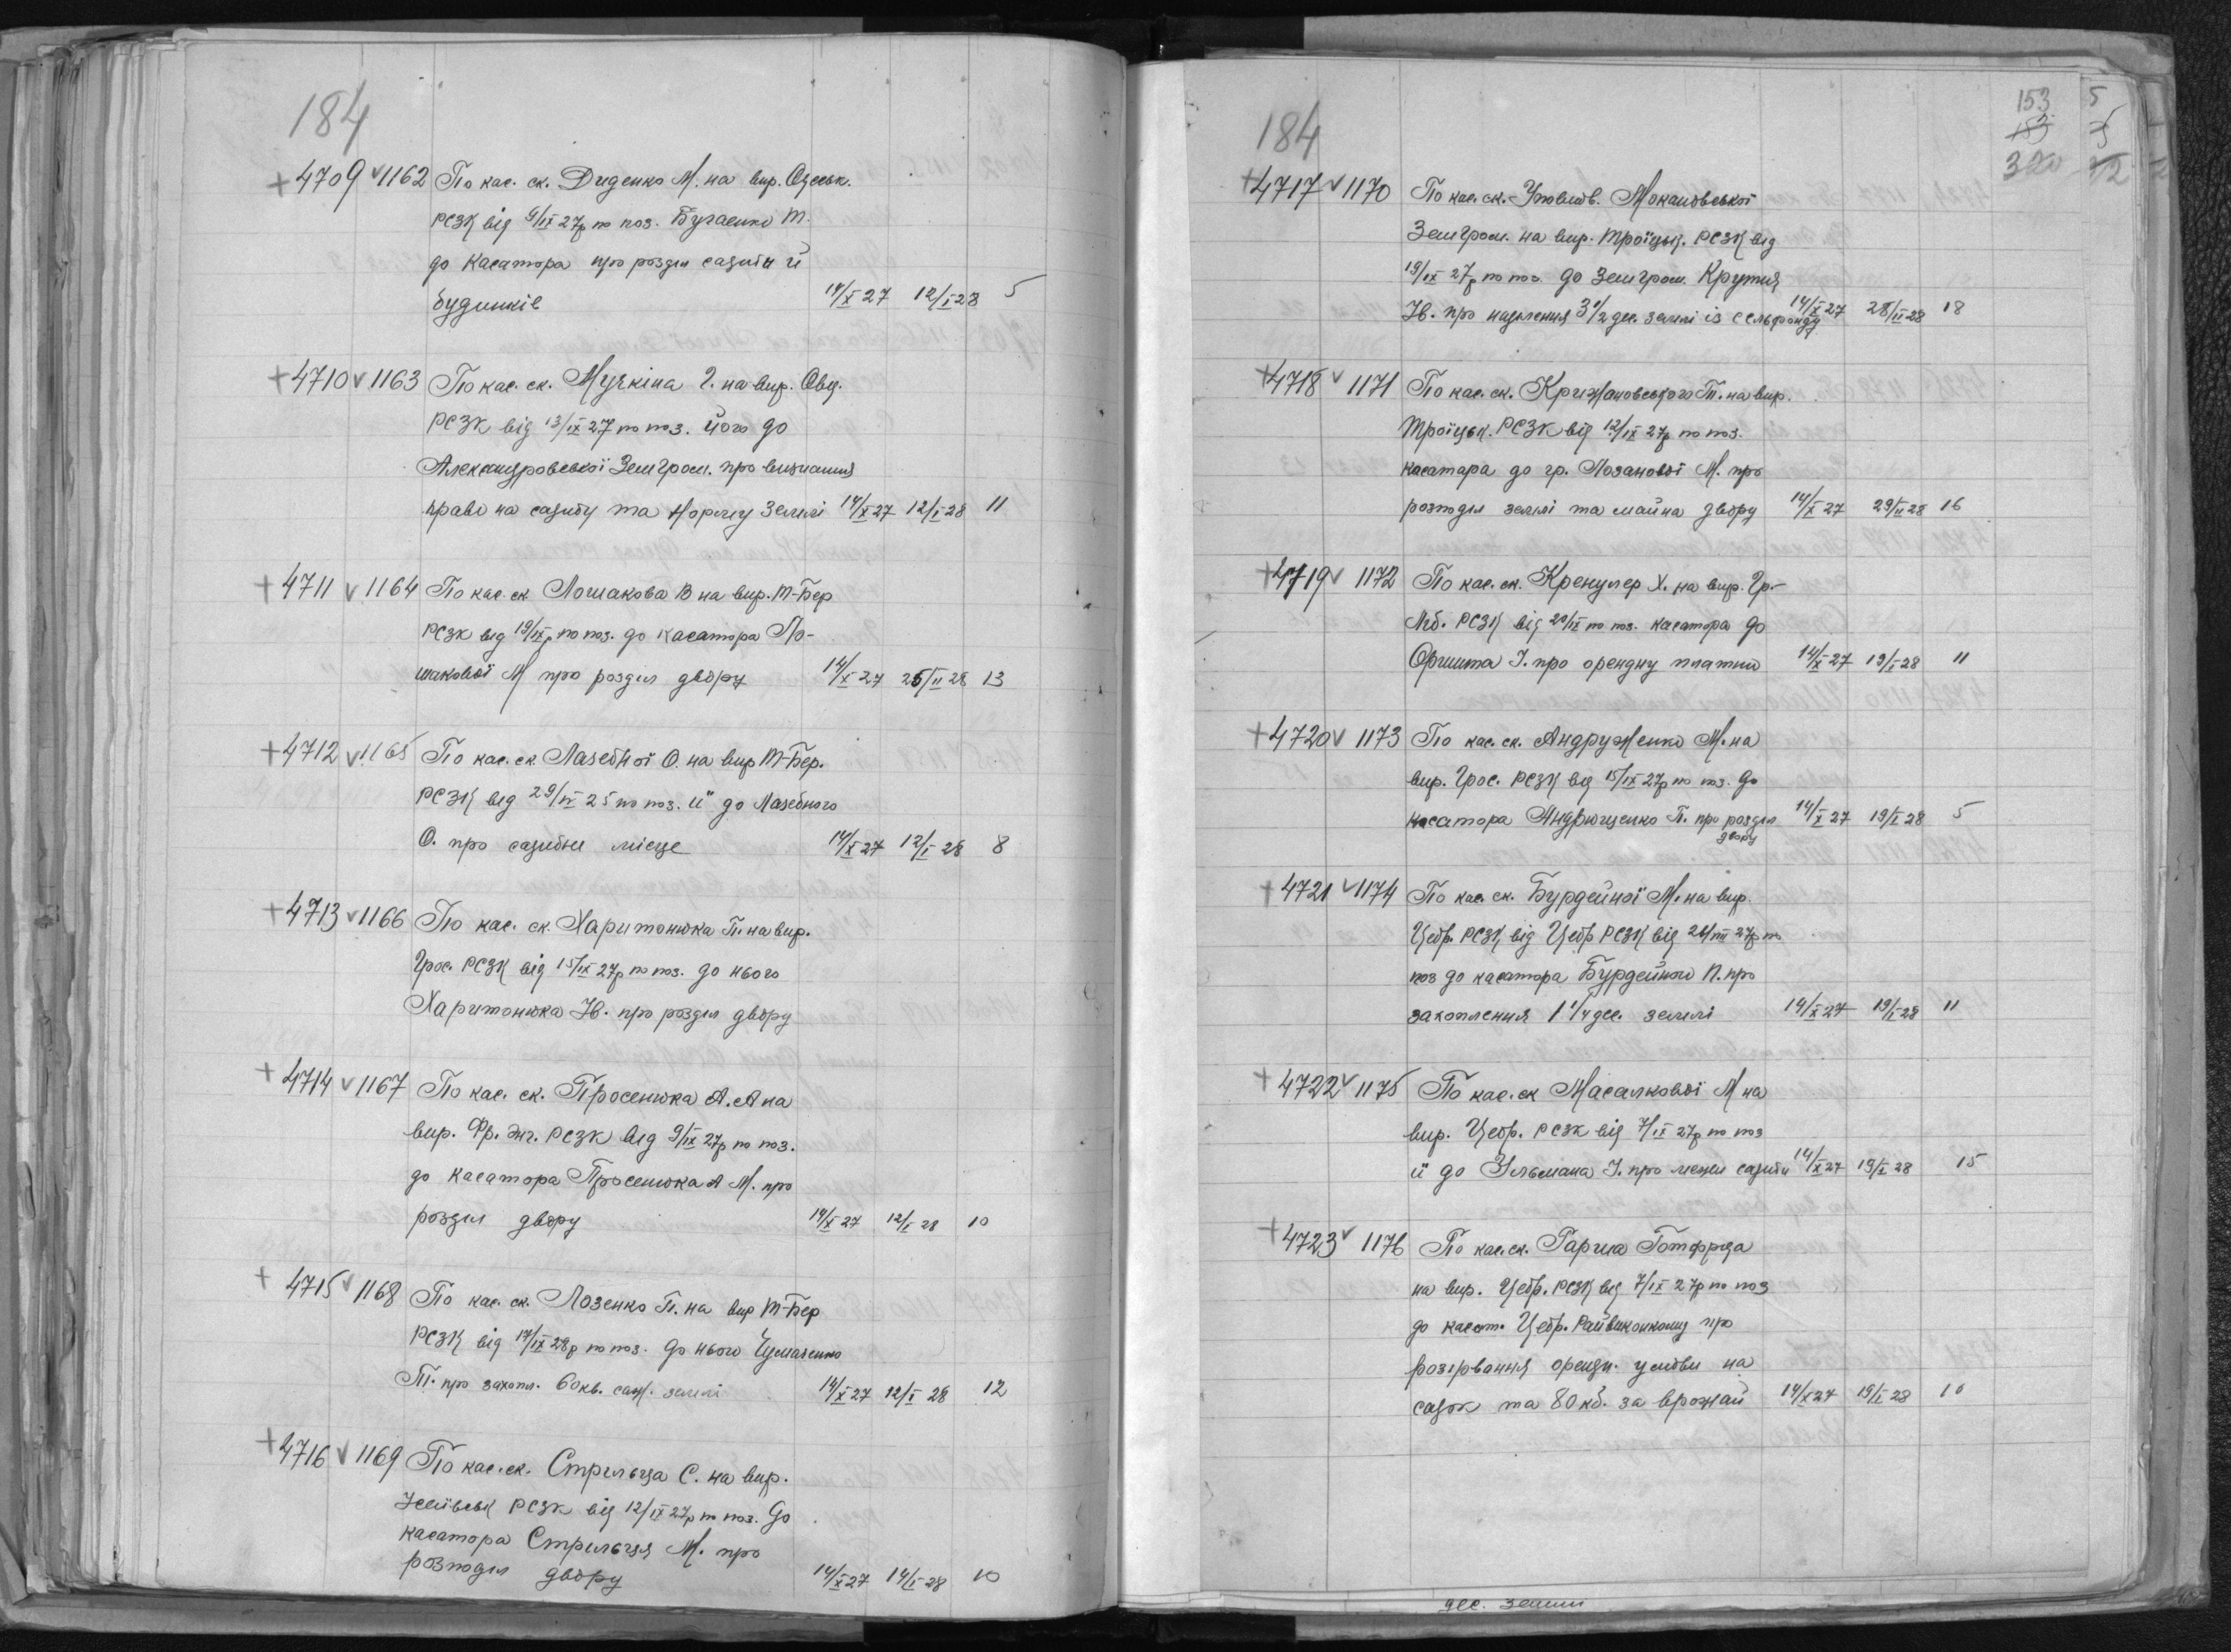 184
+ 4709 v 1162 По кас. ск. Диденко М. на вир. Одеськ.
РСЗК від 9/IX 27р по поз. Бугаенко Т.
до касатора про розділ садиби й
будинків 14/X 27 12/I 28 5
+ 4710 v 1163 По кас. ск. Мучкіна І. на вир. Овід.
РСЗК від 13/IX 27 по поз. його до
Александровської Земгром. про визнання
права на садибу та норму землі 14/X 27 12/I 28 11
+ 4711 v 1164 По кас. ск Лошакова В на вир. Т-Бер
РСЗК від 19/IX р по поз. до касатора Ло-
шакової М про розділ двору 14/X 27 25/II 28 13
+ 4712 v 1165 По кас. ск. Лазебної О. на вир Т-Бер.
РСЗК від 29/IV 25 по поз. її до Лазебного
О. про садибне місце 14/X 27 12/I 28 8
+ 4713 v 1166 По кас. ск. Харитонюка П. на вир.
Грос. РСЗК від 15/IX 27р по поз. до нього
Харитонюка Ів. про розділ двору
+ 4714 v 1167 По кас. ск. Просенюка А. А на
вир. Фр. Энг. РСЗК від 9/IX 27р по поз.
до касатора Просенюка А М. про
розділ двору 14/X 27 12/I 28 10
+ 4715 v 1168 По кас. ск. Лозенко П. на вир Т-Бер
РСЗК від 17/IX 28р по поз. до нього Чумаченко
Т. про захопл. 60 кв. саж. землі 14/X 27 12/I 28 12
+ 4716 v 1169 По кас. ск. Стрільця С. на вир.
РСЗК від 12/IX 27р по поз. до
касатора Стрільця М. про
розподіл двору 14/X 27 14/I 28 10
184
153 5
320
+ 4717 v 1170 По кас. ск. Уповнов. Мокановської
Земгром. на вир. Троїцьк. РСЗК від
19/IX 27р по поз. до Земгром. Крутия
Ів. про наділення 3 1/2 дес. землі із сельфонду 14/X 27 28/II 28 18
+ 4718 v 1171 По кас. ск. Крижановського П. на вир.
Троїцьк. РСЗК від 12/IX 27р по поз.
касатара до гр. Лозанової М. про
розподіл землі та майна двору 14/X 27 29/II 28 16
+ 4719 v 1172 По кас. ск. Кренцлер Х. на вир. Гр.-
Ліб. РСЗК від 20/IX по поз. касатора до
Оршита І. про орендну платню 14/X 27 19/I 28 11
+ 4720 v 1173 По кас. ск. Андруженко М. на
вир. Грос. РСЗК від 15/IX 27р по поз. до
касатора Андрющенко П. про розділ 14/X 27 19/I 28 5
двору
+ 4721 v 1174 По кас. ск. Бурдейної М. на вир.
Цебр. РСЗК від Цебр РСЗК від 24/III 27р по
поз до касатора Бурдейного П. про
захоплення 1 1/4 дес. землі 14/X 27 19/I 28 11
+ 4722 v 1175 По кас. ск Масалкової М на
вир. Цебр. РСЗК від 7/IX 27р по поз
її до Зельмана І. про межи садиби 14/X 27 19/I 28 15
+ 4723 v 1176 По кас. ск. Гарша Готфріда
на вир. Цебр. РСЗК від 7/IX 27р по поз
до касат. Цебр. Райвиконкому про
розірвання орендн. умови на
садок та 80 кб. за врожай 14/X 27 19/I 28 10
дес. земли